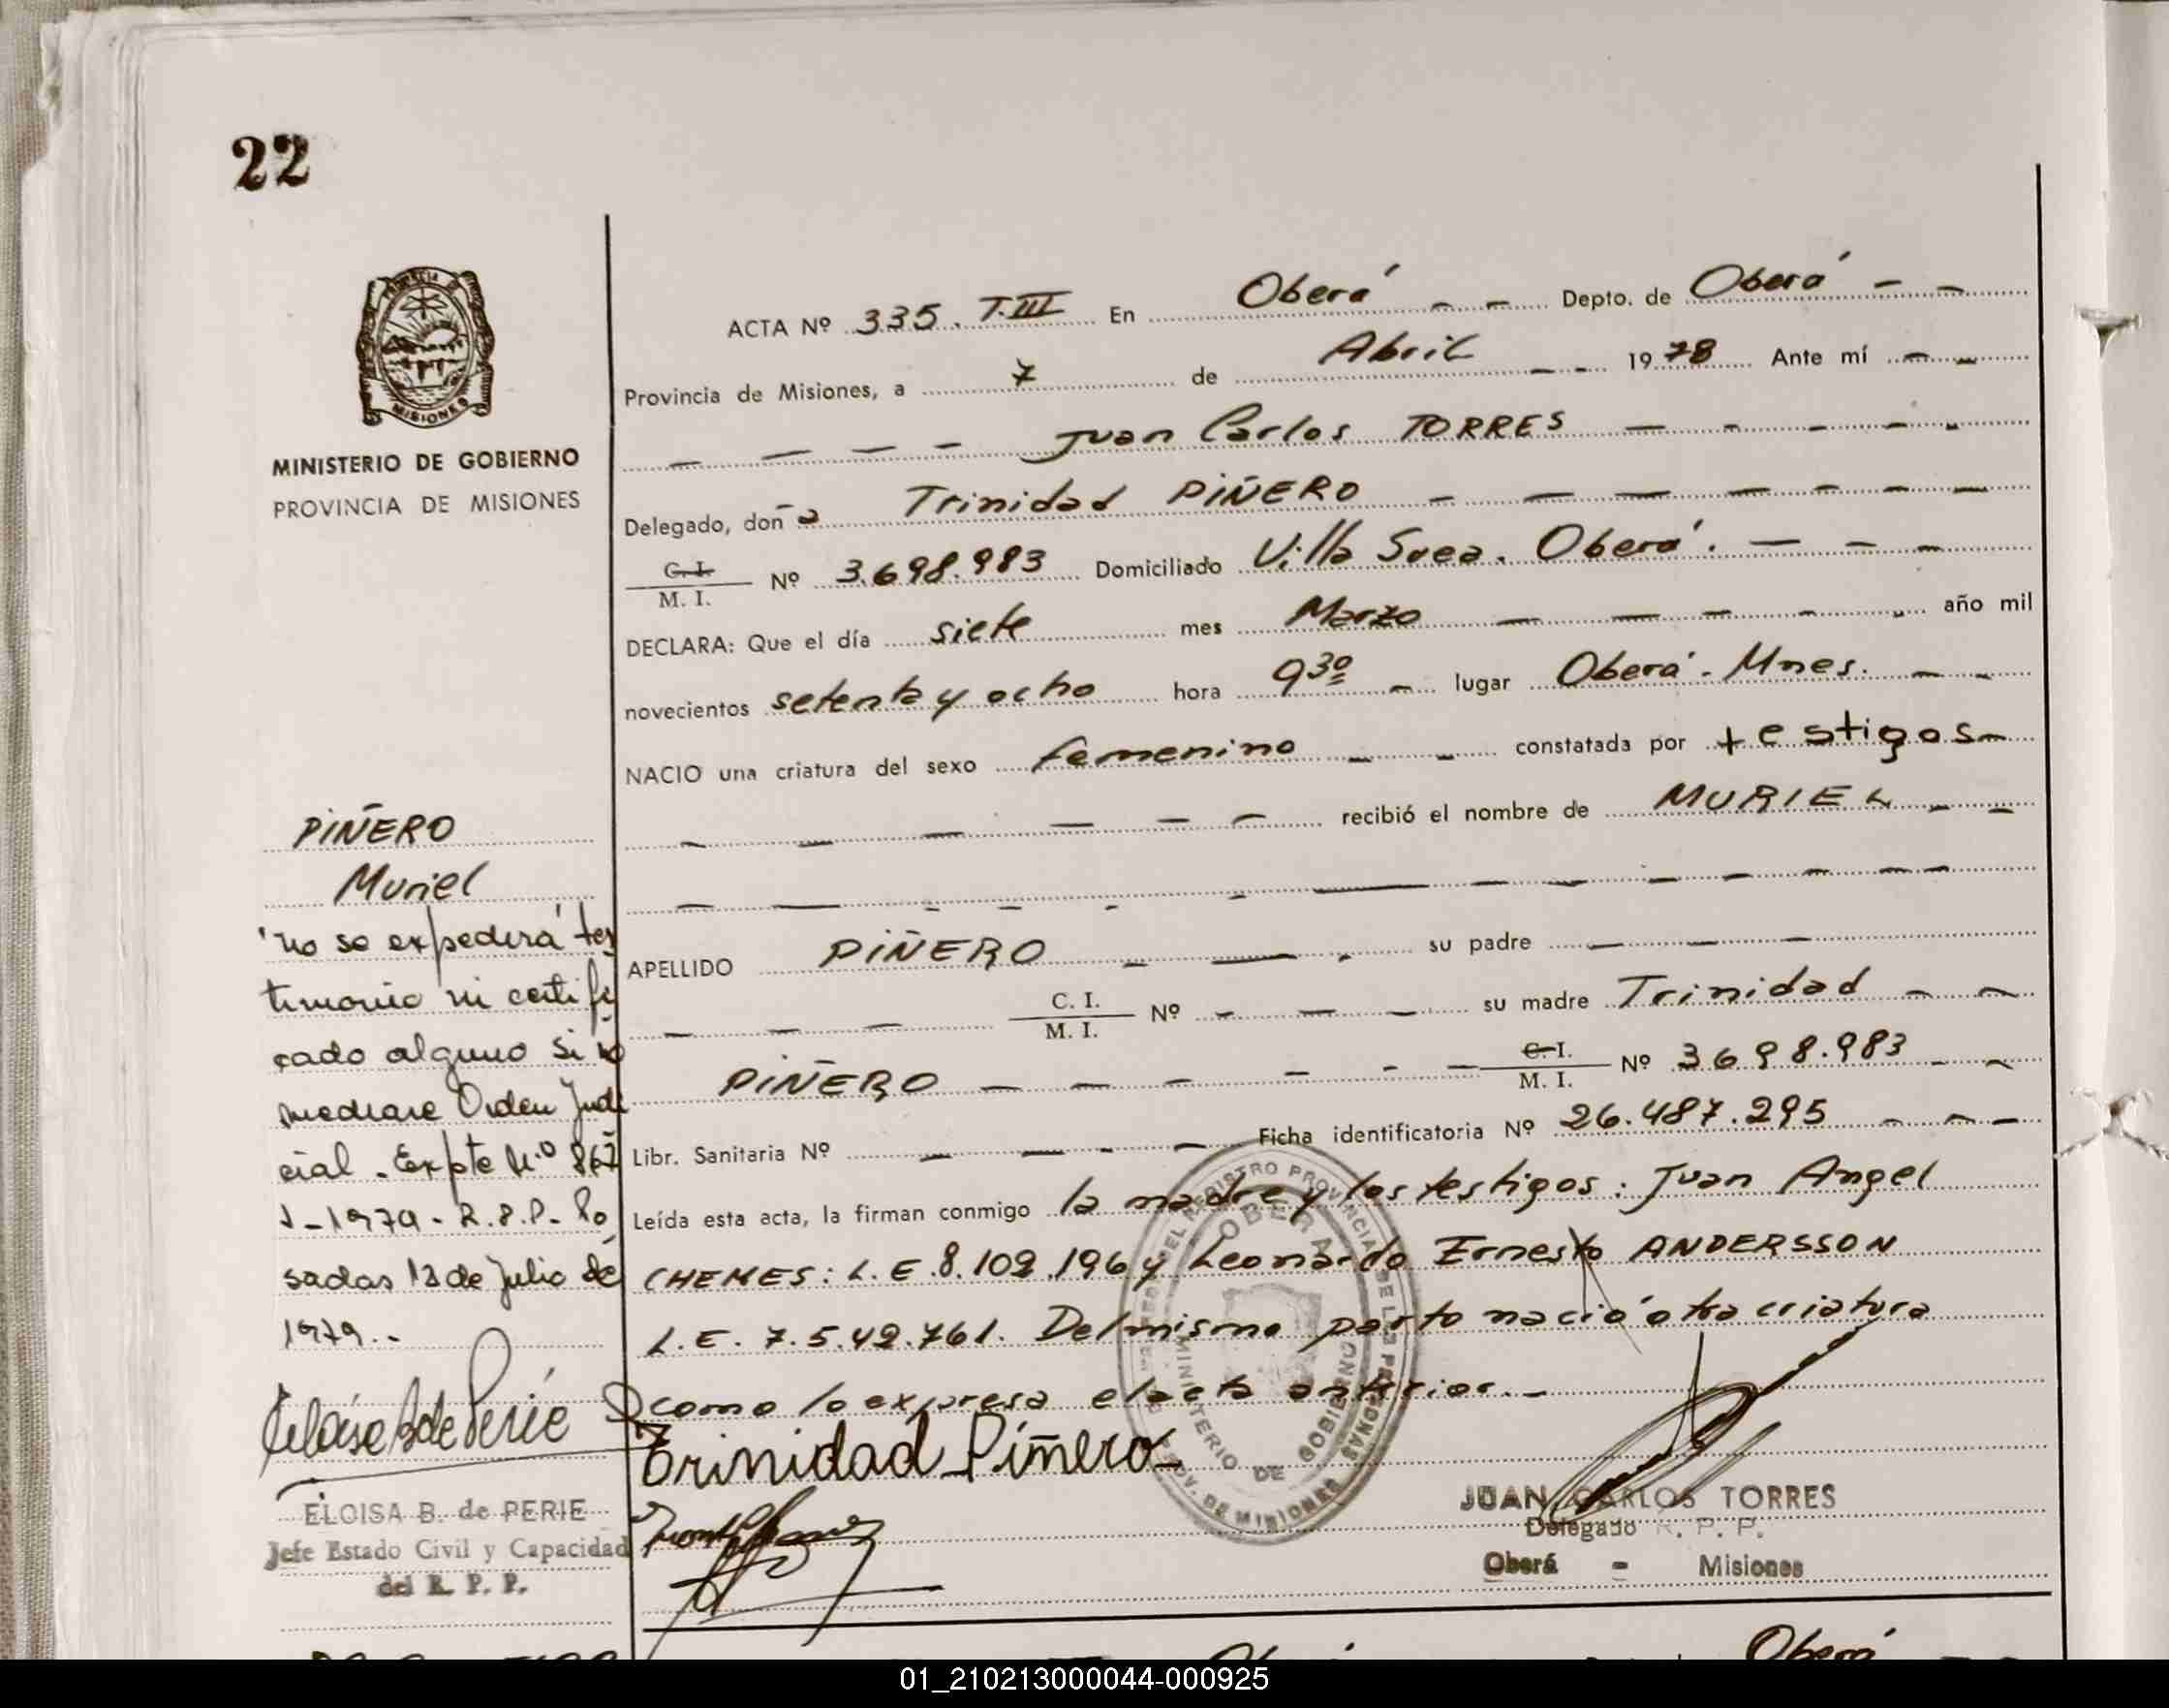 22
MISIONES
MINISTERIO DE GOBIERNO
PROVINCIA DE MISIONES
ACTA Nº 335. T.III En Oberá - - Depto. de Oberá - -
Provincia de Misiones, a 7 de Abril - - 1978 Ante mí - -
- - - - Juan Carlos TORRES - - - - -
Delegado, doña Trinidad PIÑERO - - - - - - -
C. I. / M. I. Nº 3.698.983 Domiciliado Villa Svea. Oberá. - - -
DECLARA: Que el día siete mes Marzo - - - - - año mil
novecientos setenta y ocho hora 9 30 - lugar Oberá. Mnes. - -
NACIO una criatura del sexo femenino - - constatada por testigos-
- - - - - - recibió el nombre de MURIEL - -
APELLIDO PIÑERO - - - su padre - - -
- - - C. I. / M. I. Nº - - - su madre Trinidad - -
PIÑERO - - - - - - C. I. / M. I. Nº 3698.983 - -
Libr. Sanitaria Nº - - - - Ficha identificatoria Nº 26.487.295 - - -
Leída esta acta, la firman conmigo la madre y los testigos: Juan Angel
CHEMES: L.E.8.102.196 y Leonardo Ernesto ANDERSSON
L.E. 7.542.761. Del mismo parto nació otra criatura
como lo expresa el acta anterior.-
Trinidad Piñero
JUAN CARLOS TORRES
Delegado R. P. P.
Oberá - Misiones
OBERA
MINISTERIO DE GOBIERNO
PROV. DE MISIONES
PIÑERO
Muriel
"no se expedirá tes
timonio ni certifi
cado alguno si no
mediare Orden Judi
cial. Expte N.º 867
J-1979- R.P.P. Po
sadas 12 de Julio de
1979.-
ELOISA B. de PERIE
Jefe Estado Civil y Capacidad
del R. P. P.
Oberá
01_210213000044-000925